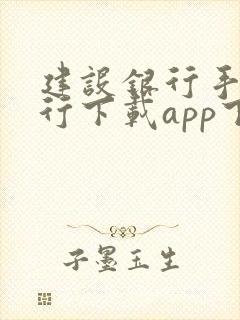 建設銀行手
行下載app下
子墨玉生